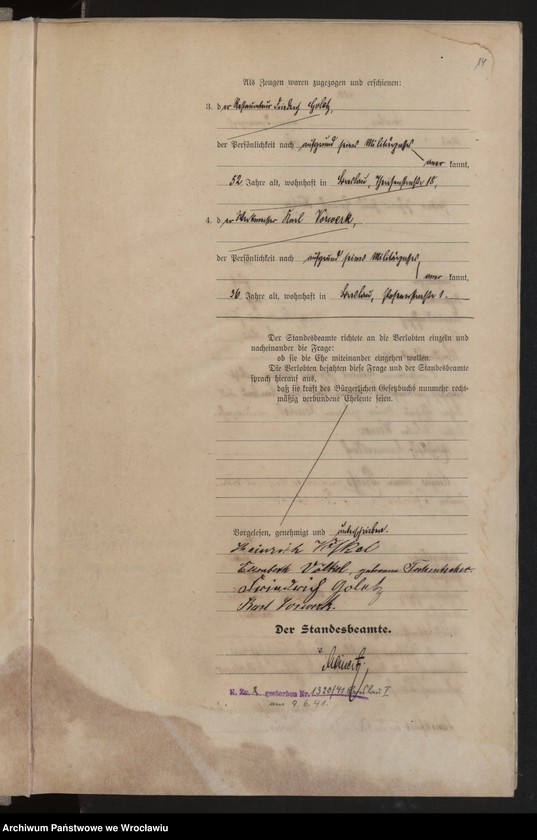 14
Als Zeugen waren zugezogen und erschienen:
3. der Restaurateur Friedrich Goletz,
der Persönlichkeit nach aufgrund seines Militärpasses
aner kannt,
52 Jahre alt, wohnhaft in Breslau, 18,
4. der Werkmeister Karl Vorwerk,
der Persönlichkeit nach aufgrund seines Militärpasses
aner kannt,
36 Jahre alt, wohnhaft in Breslau, Posenerstraße 1.
Der Standesbeamte richtete an die Verlobten einzeln und
nacheinander die Frage:
ob sie die Ehe miteinander eingehen wollen.
Die Verlobten bejahten diese Frage und der Standesbeamte
sprach hierauf aus,
daß sie kraft des Bürgerlichen Gesetzbuchs nunmehr recht-
mäßig verbundene Eheleute seien.
Vorgelesen, genehmigt und unterschrieben.
Heinrich Völkel
Elisabeth Völkel, geborene
Friedrich Goletz
Karl Vorwerk.
Der Standesbeamte.
gestorben Nr. 1320/41 Breslau V
am 9.6.41.
Archiwum Państwowe we Wrocławiu